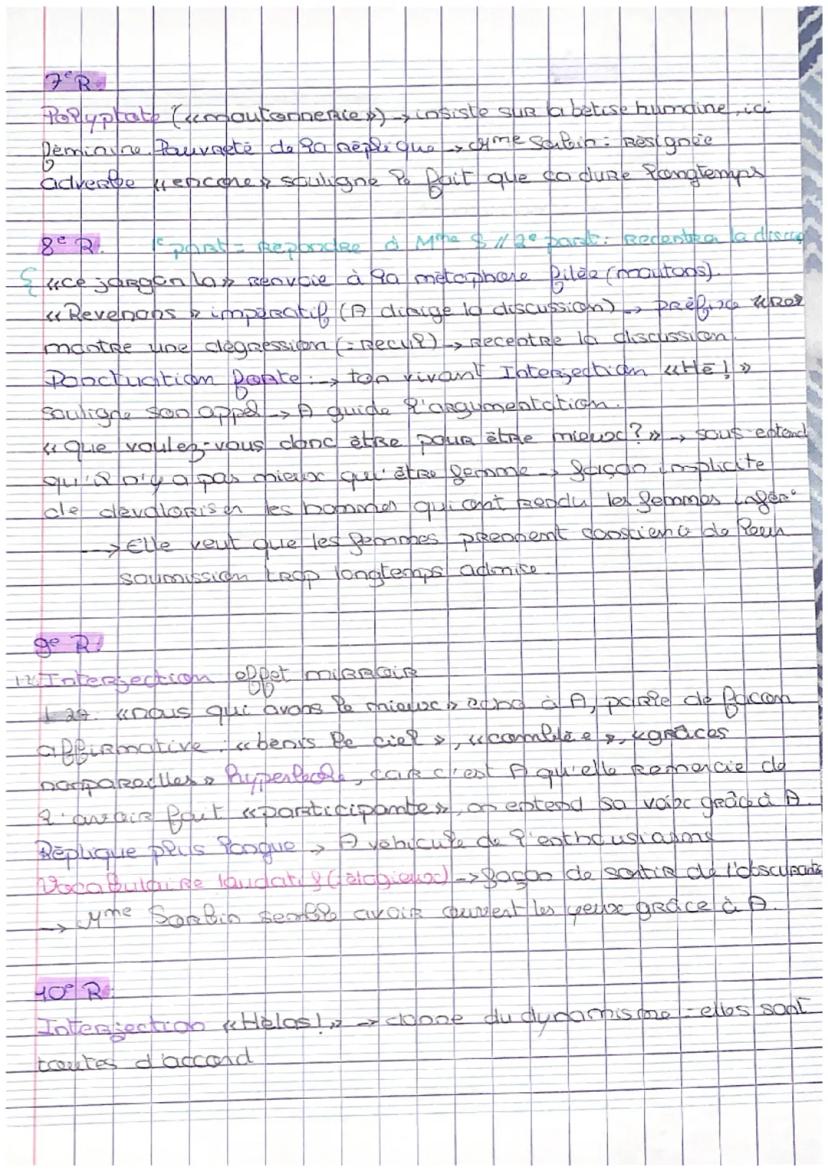 7e R.
Polyptote (« moutonnerie ») → insiste sur la bêtise humaine, ici
féminine. Pauvreté de la réplique → Mme Sorbin : Résignée
adverbe « encore » souligne le fait que ça dure longtemps
8e R. 1e part = Répondre à Mme S // 2e part : Recentrer la discu
« ce jargon la » Renvoie à la métaphore filée (moutons).
« Revenons » impératif (A dirige la discussion) → préfixe « Re »
montre une degression (= recul) → Recentre la discussion.
Ponctuation forte : → ton vivant Intersection « Hé ! »
souligne son appel → A guide l'argumentation.
« que voulez-vous donc être pour être mieux ? » → sous-entend
qu'il n'y a pas mieux qu'être femme → façon implicite
de dévaloriser les hommes qui ont rendu les femmes infér
→ Elle veut que les femmes prennent conscience de leur
soumission trop longtemps admise.
9e R.
Intersection effet miRRoir
« nous qui avons le mieux » à A, parle de façon
affirmative : « benis le ciel », « comblée », « grâces
nonpareilles » hyperbole, car c'est A qu'elle Remercie de
l'avoir fait « participante », on entend sa voix grâce à A.
Réplique plus longue → A véhicule de l'enthousiasme
Vocabulaire laudatif (= élogieux) → façon de sortir de l'obscurité
→ Mme Sorbin semble avoir ouvert les yeux grâce à A.
10e R.
Intersjection « Hélas ! » → donne du dynamisme = elles sont
toutes d'accord